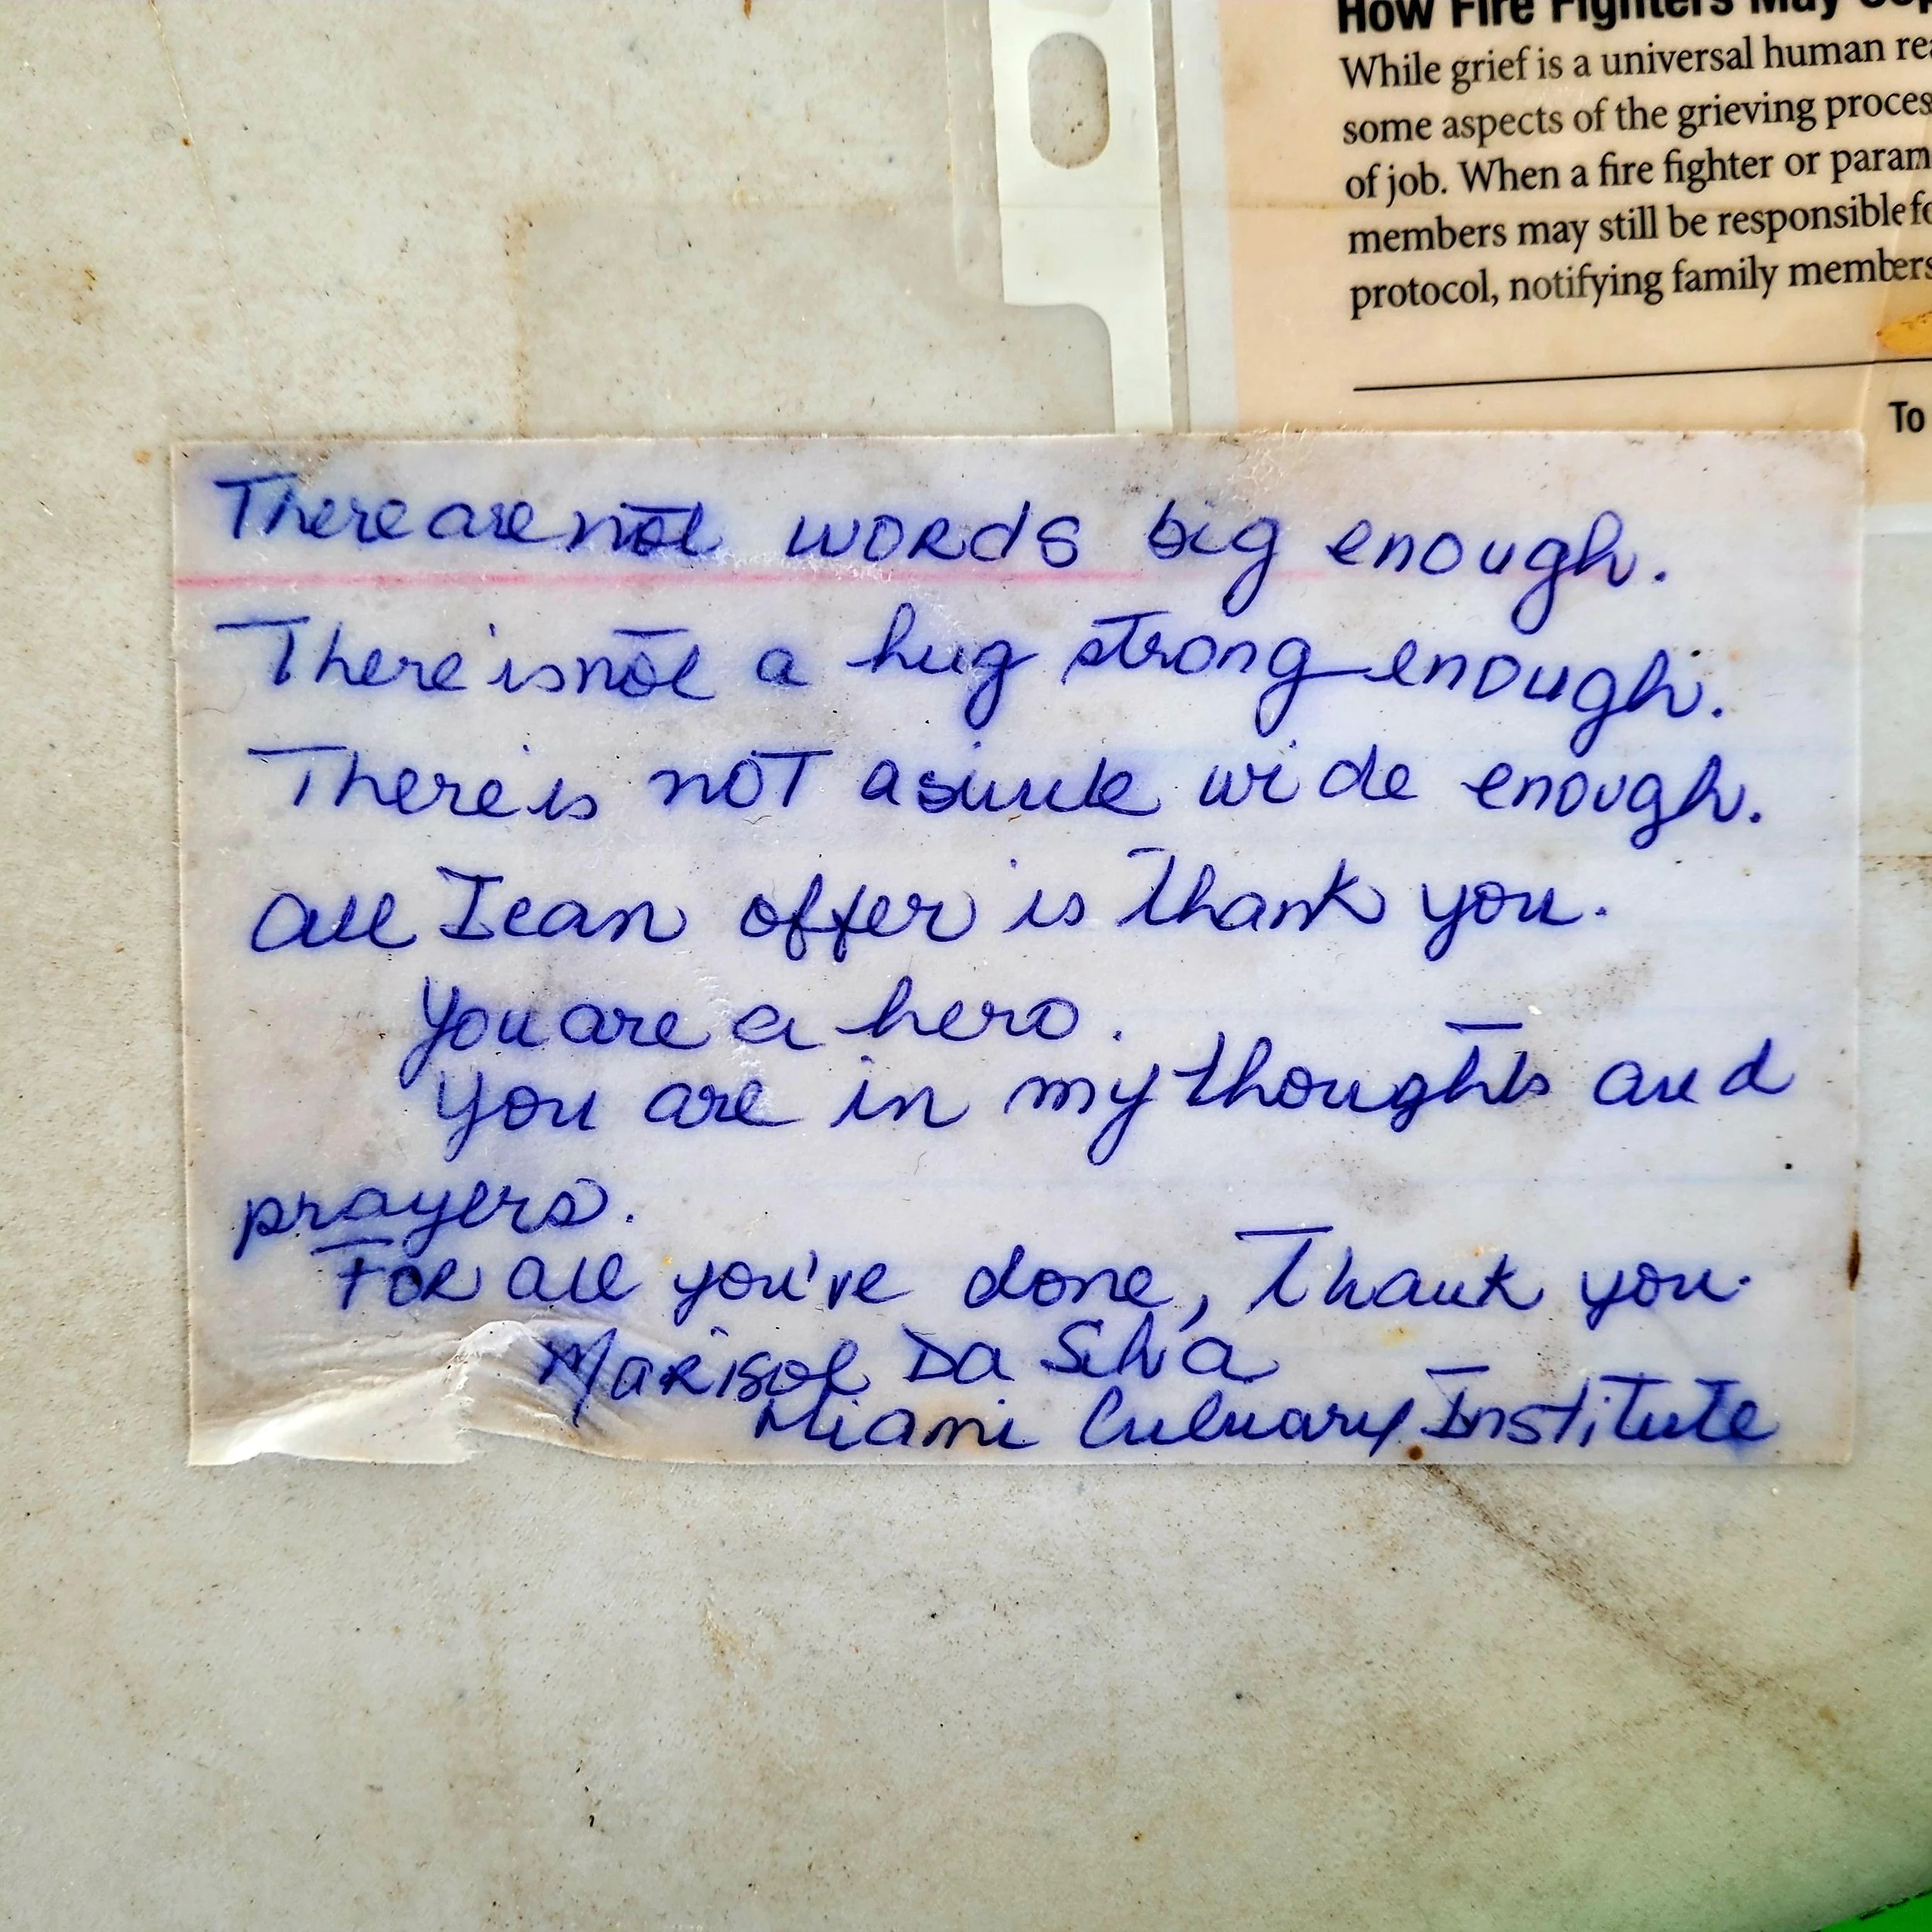 How Fire Fighters May
While grief is a universal human
some aspects of the grieving
of job. When a fire fighter or
members may still be responsible
protocol, notifying family members
To
There are not words big enough.
There is not a hug strong enough.
There is not a smile wide enough.
All I can offer is Thank you.
You are a hero.
You are in my thoughts and
prayers.
For all you've done, Thank you.
Marisol Da Silva
Miami Culinary Institute